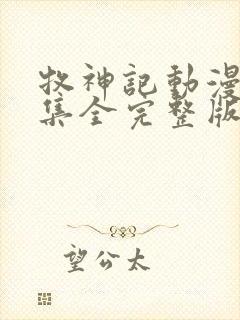 牧神記動漫
集全完整版
望公太